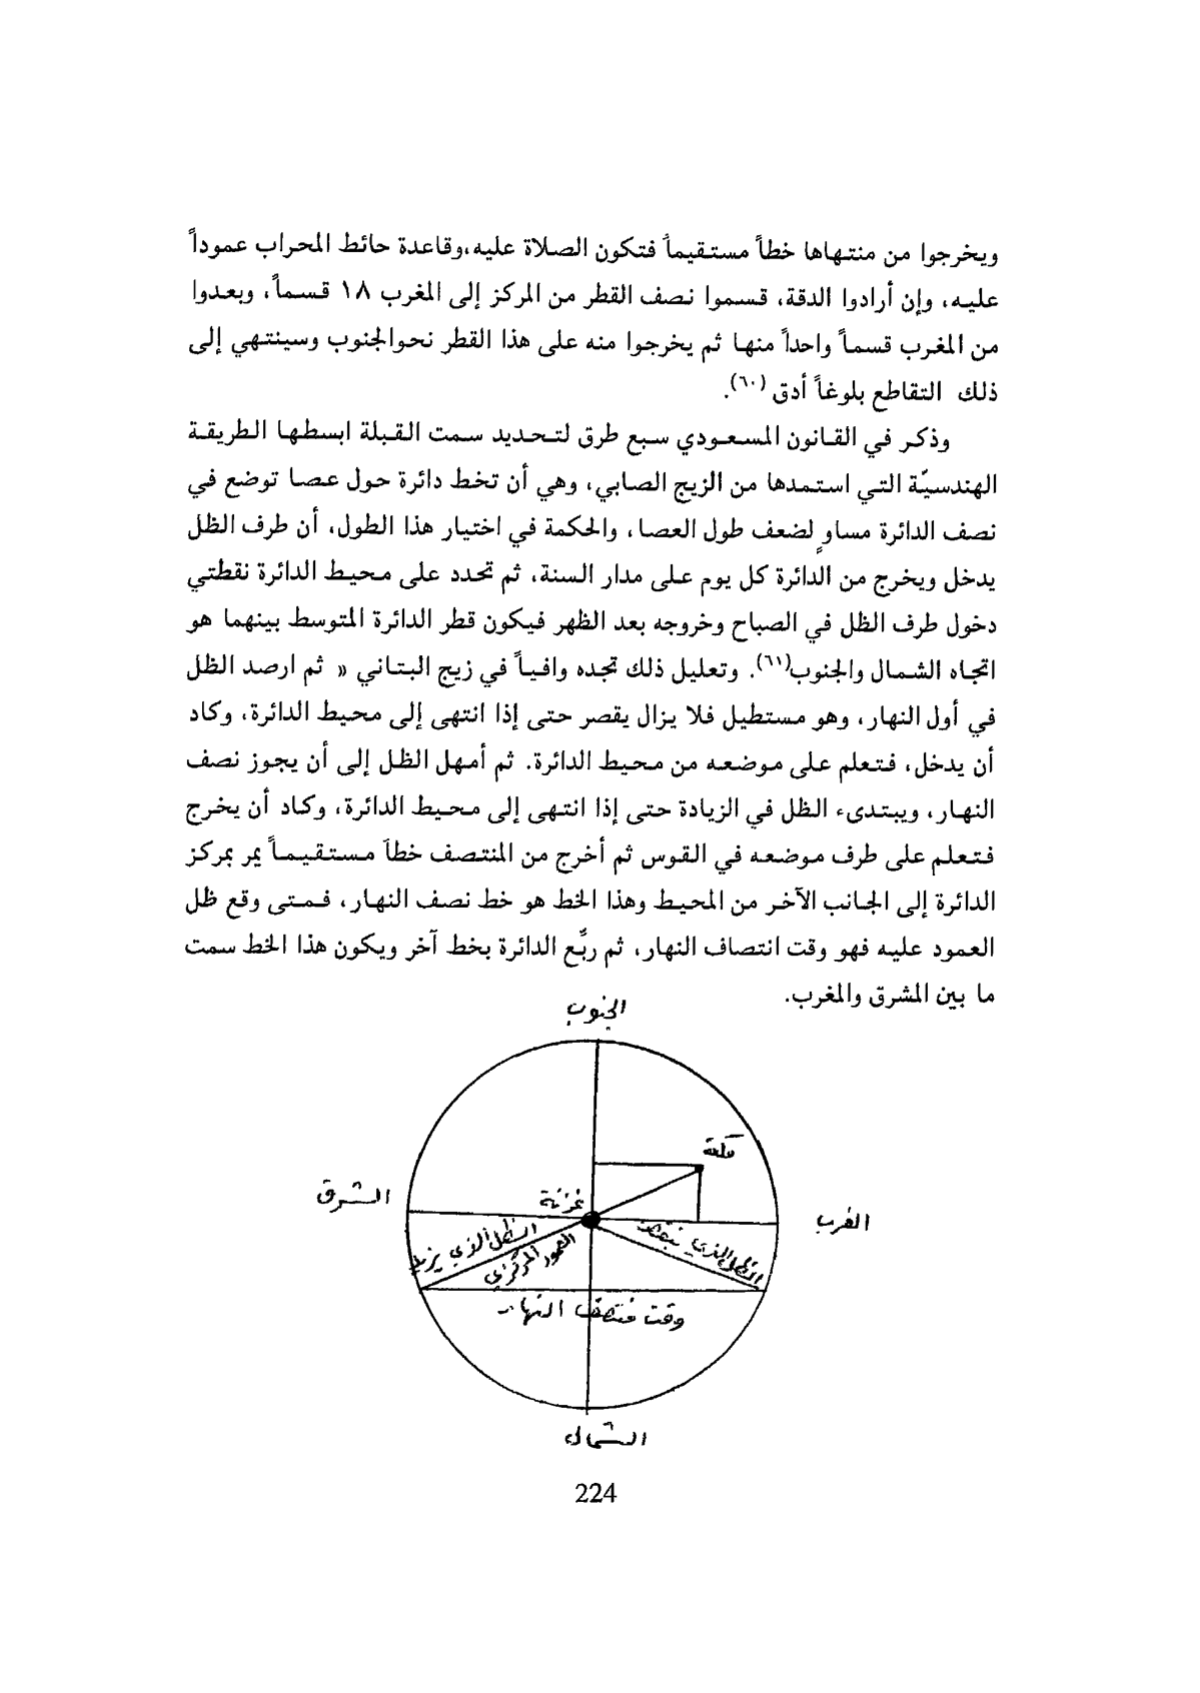 ويخرجوا من منتهاها خطاً مستقيماً فتكون الصلاة عليه،وقاعدة حائط المحراب عموداً
عليه، وإن أرادوا الدقة، قسموا نصف القطر من المركز إلى المغرب ١٨ قسماً، وبعدوا
من المغرب قسماً واحداً منها ثم يخرجوا منه على هذا القطر نحوالجنوب وسينتهي إلى
ذلك التقاطع بلوغاً أدق (٦٠).
وذكر في القانون المسعودي سبع طرق لتحديد سمت القبلة ابسطها الطريقة
الهندسيّة التي استمدها من الزيج الصابي، وهي أن تخط دائرة حول عصا توضع في
نصف الدائرة مساوٍ لضعف طول العصا، والحكمة في اختيار هذا الطول، أن طرف الظل
يدخل ويخرج من الدائرة كل يوم على مدار السنة، ثم تحدد على محيط الدائرة نقطتي
دخول طرف الظل في الصباح وخروجه بعد الظهر فيكون قطر الدائرة المتوسط بينهما هو
اتجاه الشمال والجنوب(٦١). وتعليل ذلك تجده وافياً في زيج البتاني « ثم ارصد الظل
في أول النهار، وهو مستطيل فلا يزال يقصر حتى إذا انتهى إلى محيط الدائرة، وكاد
أن يدخل، فتعلم على موضعه من محيط الدائرة. ثم أمهل الظل إلى أن يجوز نصف
النهار، ويبتدىء الظل في الزيادة حتى إذا انتهى إلى محيط الدائرة، وكاد أن يخرج
فتعلم على طرف موضعه في القوس ثم أخرج من المنتصف خطاً مستقيماً يمر بمركز
الدائرة إلى الجانب الآخر من المحيط وهذا الخط هو خط نصف النهار، فمتى وقع ظل
العمود عليه فهو وقت انتصاف النهار، ثم ربِّع الدائرة بخط آخر ويكون هذا الخط سمت
ما بين المشرق والمغرب.
الجنوب
مكة
الشرق
غزنة
الغرب
الظل الذي يزيد
العمود المركزي
الظل الذي ينقص
وقت منتصف النهار
الشمال
224